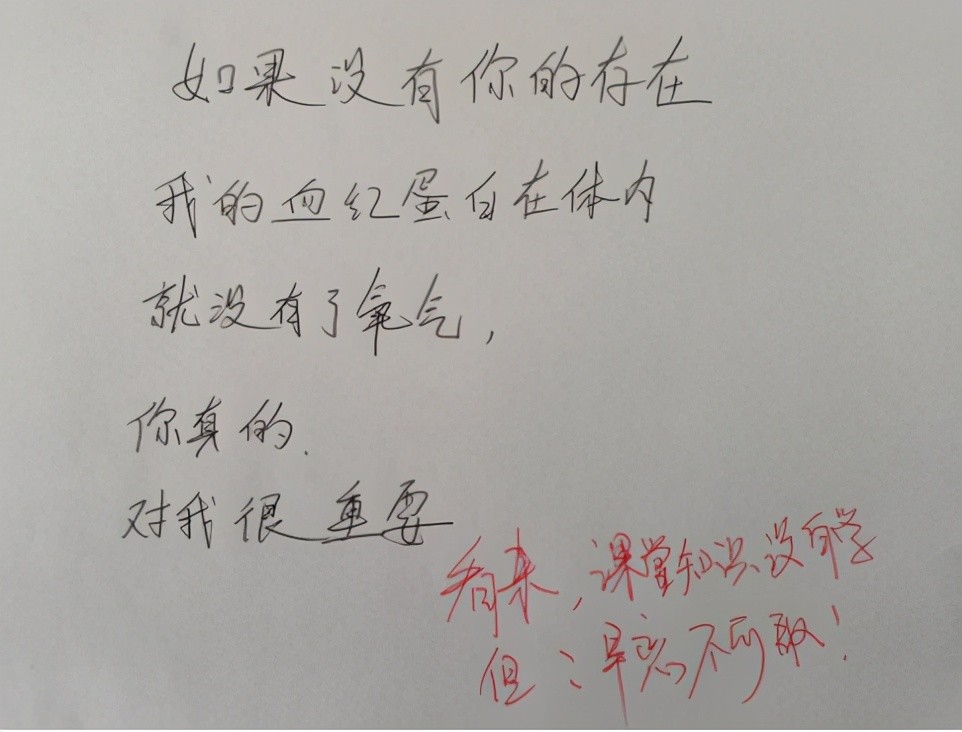 如果没有你的存在
我的血红蛋白在体内
就没有了氧气，
你真的.
对我很重要
看来，课堂知识没白学
但：早恋不可取！